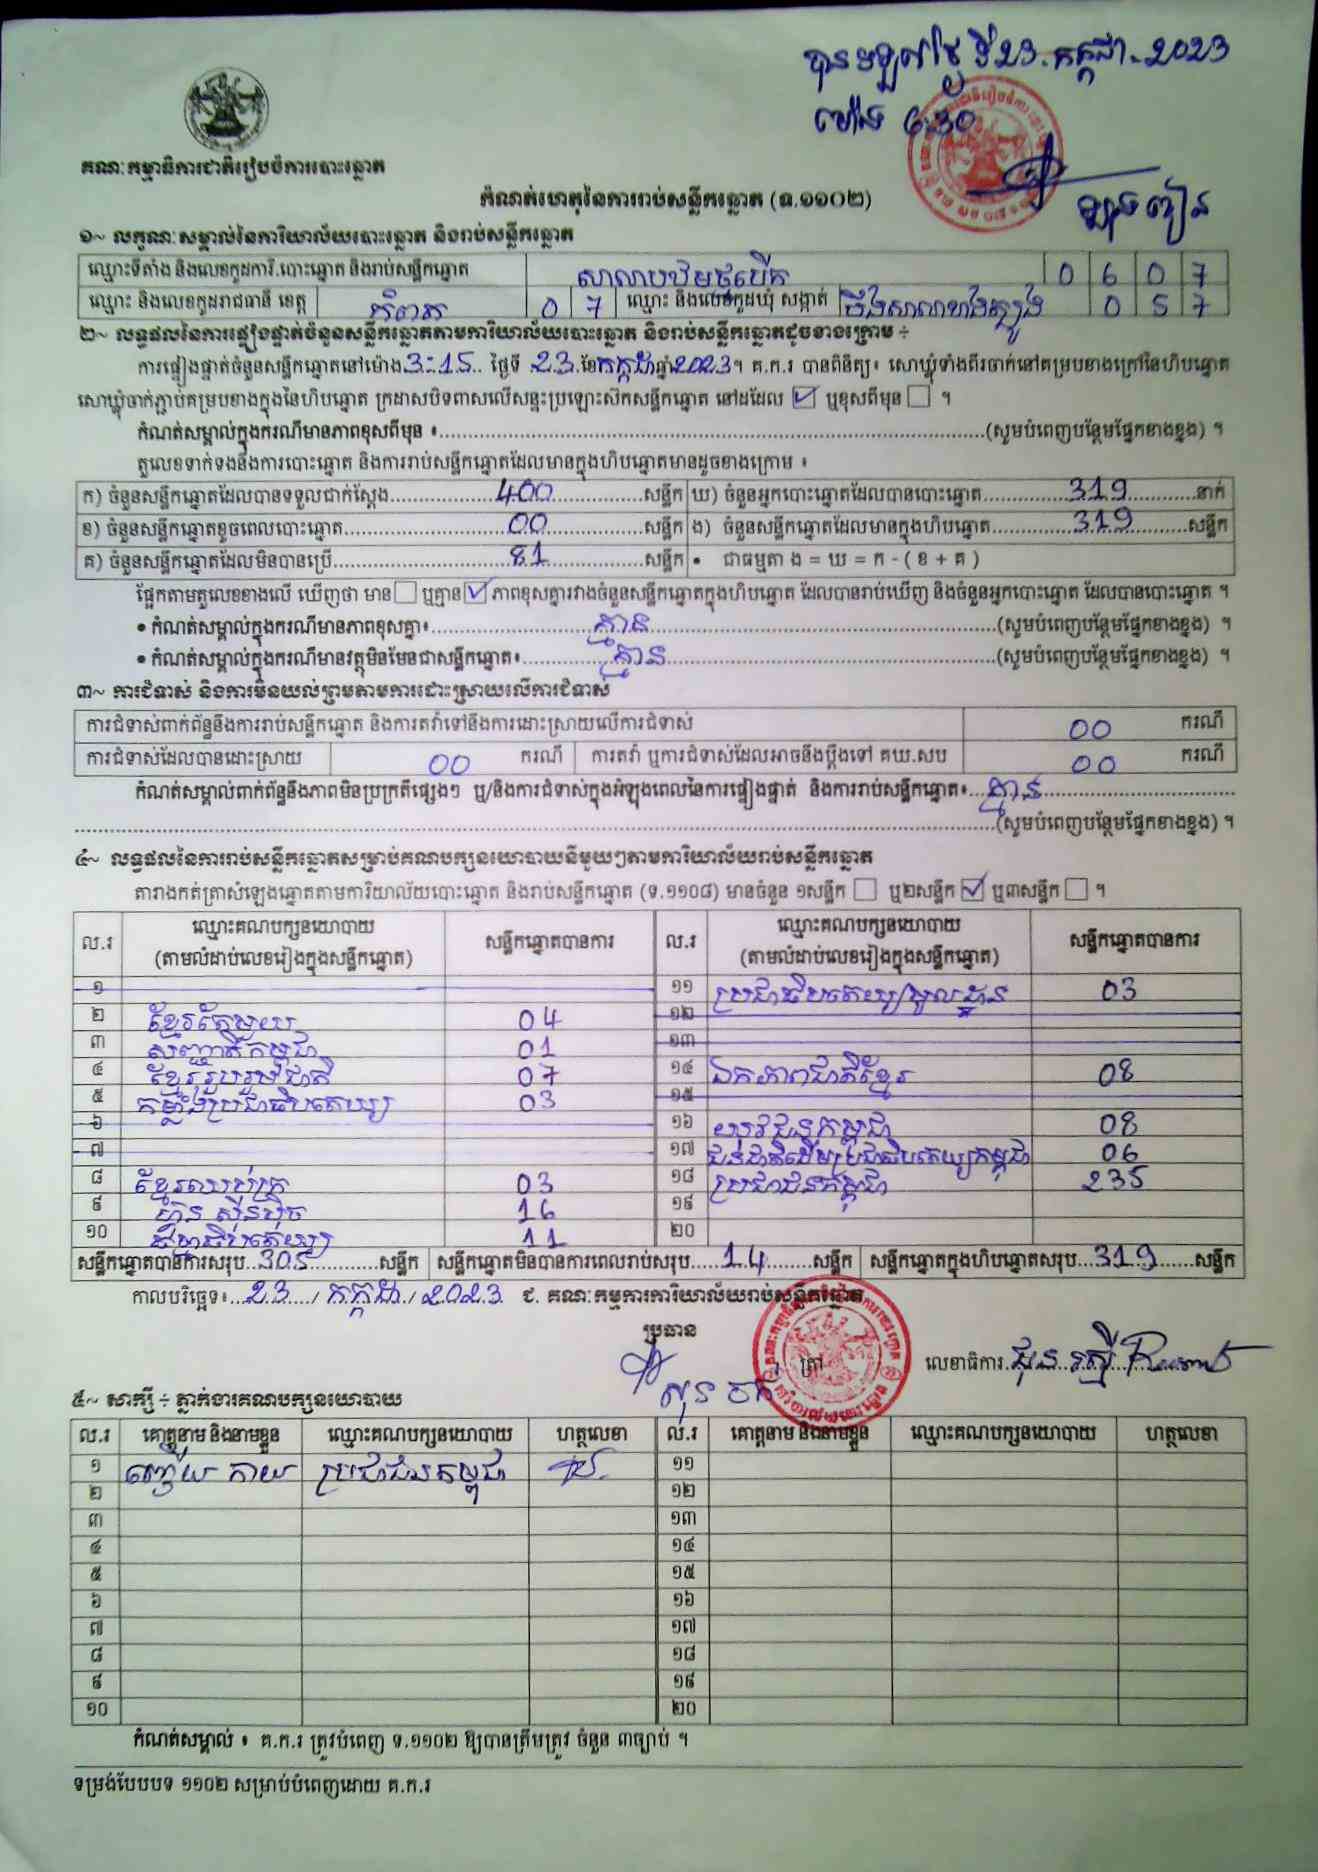 បានមកដល់ថ្ងៃទី23.កក្កដា.2023
ម៉ោង 6:30
គណៈកម្មាធិការជាតិរៀបចំការបោះឆ្នោត
កំណត់ហេតុនៃការរាប់សន្លឹកឆ្នោត (ទ.១១០២)
១~ លក្ខណៈសម្គាល់នៃការិយាល័យបោះឆ្នោត និងរាប់សន្លឹកឆ្នោត
ឈ្មោះទីតាំង និងលេខកូដការិ.បោះឆ្នោត និងរាប់សន្លឹកឆ្នោត 0 6 0 7
ឈ្មោះ និងលេខកូដរាជធានី ខេត្ត កំពត 0 7 ឈ្មោះ និងលេខកូដឃុំ សង្កាត់ បឹងសាលាខាងត្បូង 0 5 7
២~ លទ្ធផលនៃការផ្ទៀងផ្ទាត់ចំនួនសន្លឹកឆ្នោតតាមការិយាល័យបោះឆ្នោត និងរាប់សន្លឹកឆ្នោតដូចខាងក្រោម ÷
ការផ្ទៀងផ្ទាត់ចំនួនសន្លឹកឆ្នោតនៅម៉ោង 3:15 ថ្ងៃទី 23 ខែ កក្កដា ឆ្នាំ 2023។ គ.ក.រ បានពិនិត្យ៖ សោឃ្លុំទាំងពីរចាក់នៅគម្របខាងក្រៅនៃហិបឆ្នោត
សោឃ្លុំចាក់ភ្ជាប់គម្របខាងក្នុងនៃហិបឆ្នោត ក្រដាសបិទពាសលើសន្ទះប្រឡោះស៊កសន្លឹកឆ្នោត នៅដដែល ☑ ឬខុសពីមុន ☐ ។
កំណត់សម្គាល់ក្នុងករណីមានភាពខុសពីមុន ៖ (សូមបំពេញបន្ថែមផ្នែកខាងខ្នង) ។
តួលេខទាក់ទងនឹងការបោះឆ្នោត និងការរាប់សន្លឹកឆ្នោតដែលមានក្នុងហិបឆ្នោតមានដូចខាងក្រោម ៖
ក) ចំនួនសន្លឹកឆ្នោតដែលបានទទួលជាក់ស្តែង 400 សន្លឹក ឃ) ចំនួនអ្នកបោះឆ្នោតដែលបានបោះឆ្នោត 319 នាក់
ខ) ចំនួនសន្លឹកឆ្នោតខូចពេលបោះឆ្នោត 00 សន្លឹក ង) ចំនួនសន្លឹកឆ្នោតដែលមានក្នុងហិបឆ្នោត 319 សន្លឹក
គ) ចំនួនសន្លឹកឆ្នោតដែលមិនបានប្រើ 81 សន្លឹក • ជាធម្មតា ង = ឃ = ក - ( ខ + គ )
ផ្អែកតាមតួលេខខាងលើ ឃើញថា មាន ☐ ឬគ្មាន ☑ ភាពខុសគ្នារវាងចំនួនសន្លឹកឆ្នោតក្នុងហិបឆ្នោត ដែលបានរាប់ឃើញ និងចំនួនអ្នកបោះឆ្នោត ដែលបានបោះឆ្នោត ។
• កំណត់សម្គាល់ក្នុងករណីមានភាពខុសគ្នា៖ គ្មាន (សូមបំពេញបន្ថែមផ្នែកខាងខ្នង) ។
• កំណត់សម្គាល់ក្នុងករណីមានវត្ថុមិនមែនជាសន្លឹកឆ្នោត៖ គ្មាន (សូមបំពេញបន្ថែមផ្នែកខាងខ្នង) ។
៣~ ការជំទាស់ និងការមិនយល់ព្រមតាមការដោះស្រាយលើការជំទាស់
ការជំទាស់ពាក់ព័ន្ធនឹងការរាប់សន្លឹកឆ្នោត និងការតវ៉ាទៅនឹងការដោះស្រាយលើការជំទាស់ 00 ករណី
ការជំទាស់ដែលបានដោះស្រាយ 00 ករណី ការតវ៉ា ឬការជំទាស់ដែលអាចនឹងប្តឹងទៅ គឃ.សប 00 ករណី
កំណត់សម្គាល់ពាក់ព័ន្ធនឹងភាពមិនប្រក្រតីផ្សេងៗ ឬ/និងការជំទាស់ក្នុងអំឡុងពេលនៃការផ្ទៀងផ្ទាត់ និងការរាប់សន្លឹកឆ្នោត៖ គ្មាន
(សូមបំពេញបន្ថែមផ្នែកខាងខ្នង) ។
៤~ លទ្ធផលនៃការរាប់សន្លឹកឆ្នោតសម្រាប់គណបក្សនយោបាយនីមួយៗតាមការិយាល័យរាប់សន្លឹកឆ្នោត
តារាងកត់ត្រាសំឡេងឆ្នោតតាមការិយាល័យបោះឆ្នោត និងរាប់សន្លឹកឆ្នោត (ទ.១១០៨) មានចំនួន ១សន្លឹក ☐ ឬ២សន្លឹក ☑ ឬ៣សន្លឹក ☐ ។
ល.រ ឈ្មោះគណបក្សនយោបាយ (តាមលំដាប់លេខរៀងក្នុងសន្លឹកឆ្នោត) សន្លឹកឆ្នោតបានការ ល.រ ឈ្មោះគណបក្សនយោបាយ (តាមលំដាប់លេខរៀងក្នុងសន្លឹកឆ្នោត) សន្លឹកឆ្នោតបានការ
១ ១១ ប្រជាធិបតេយ្យមូលដ្ឋាន 03
២ ខ្មែរតែមួយ 04 ១២
៣ សញ្ជាតិកម្ពុជា 01 ១៣
៤ ខ្មែររួបរួមជាតិ 07 ១៤ ឯកភាពជាតិខ្មែរ 08
៥ កម្លាំងប្រជាធិបតេយ្យ 03 ១៥
៦ ១៦ យុវជនកម្ពុជា 08
៧ ១៧ ជនជាតិដើមប្រជាធិបតេយ្យកម្ពុជា 06
៨ ខ្មែរឈប់ក្រ 03 ១៨ ប្រជាជនកម្ពុជា 235
៩ ហ៊្វុនស៊ិនប៉ិច 16 ១៩
១០ ធម្មាធិបតេយ្យ 11 ២០
សន្លឹកឆ្នោតបានការសរុប 305 សន្លឹក សន្លឹកឆ្នោតមិនបានការពេលរាប់សរុប 14 សន្លឹក សន្លឹកឆ្នោតក្នុងហិបឆ្នោតសរុប 319 សន្លឹក
កាលបរិច្ឆេទ៖ 23 / កក្កដា / 2023 ជ. គណៈកម្មការការិយាល័យរាប់សន្លឹកឆ្នោត
ប្រធាន
ត្រា លេខាធិការ
៥~ សាក្សី ÷ ភ្នាក់ងារគណបក្សនយោបាយ
ល.រ គោត្តនាម និងនាមខ្លួន ឈ្មោះគណបក្សនយោបាយ ហត្ថលេខា ល.រ គោត្តនាម និងនាមខ្លួន ឈ្មោះគណបក្សនយោបាយ ហត្ថលេខា
១ ប្រជាជនកម្ពុជា ១១
២ ១២
៣ ១៣
៤ ១៤
៥ ១៥
៦ ១៦
៧ ១៧
៨ ១៨
៩ ១៩
១០ ២០
កំណត់សម្គាល់ ៖ គ.ក.រ ត្រូវបំពេញ ទ.១១០២ ឱ្យបានត្រឹមត្រូវ ចំនួន ៣ច្បាប់ ។
ទម្រង់បែបបទ ១១០២ សម្រាប់បំពេញដោយ គ.ក.រ